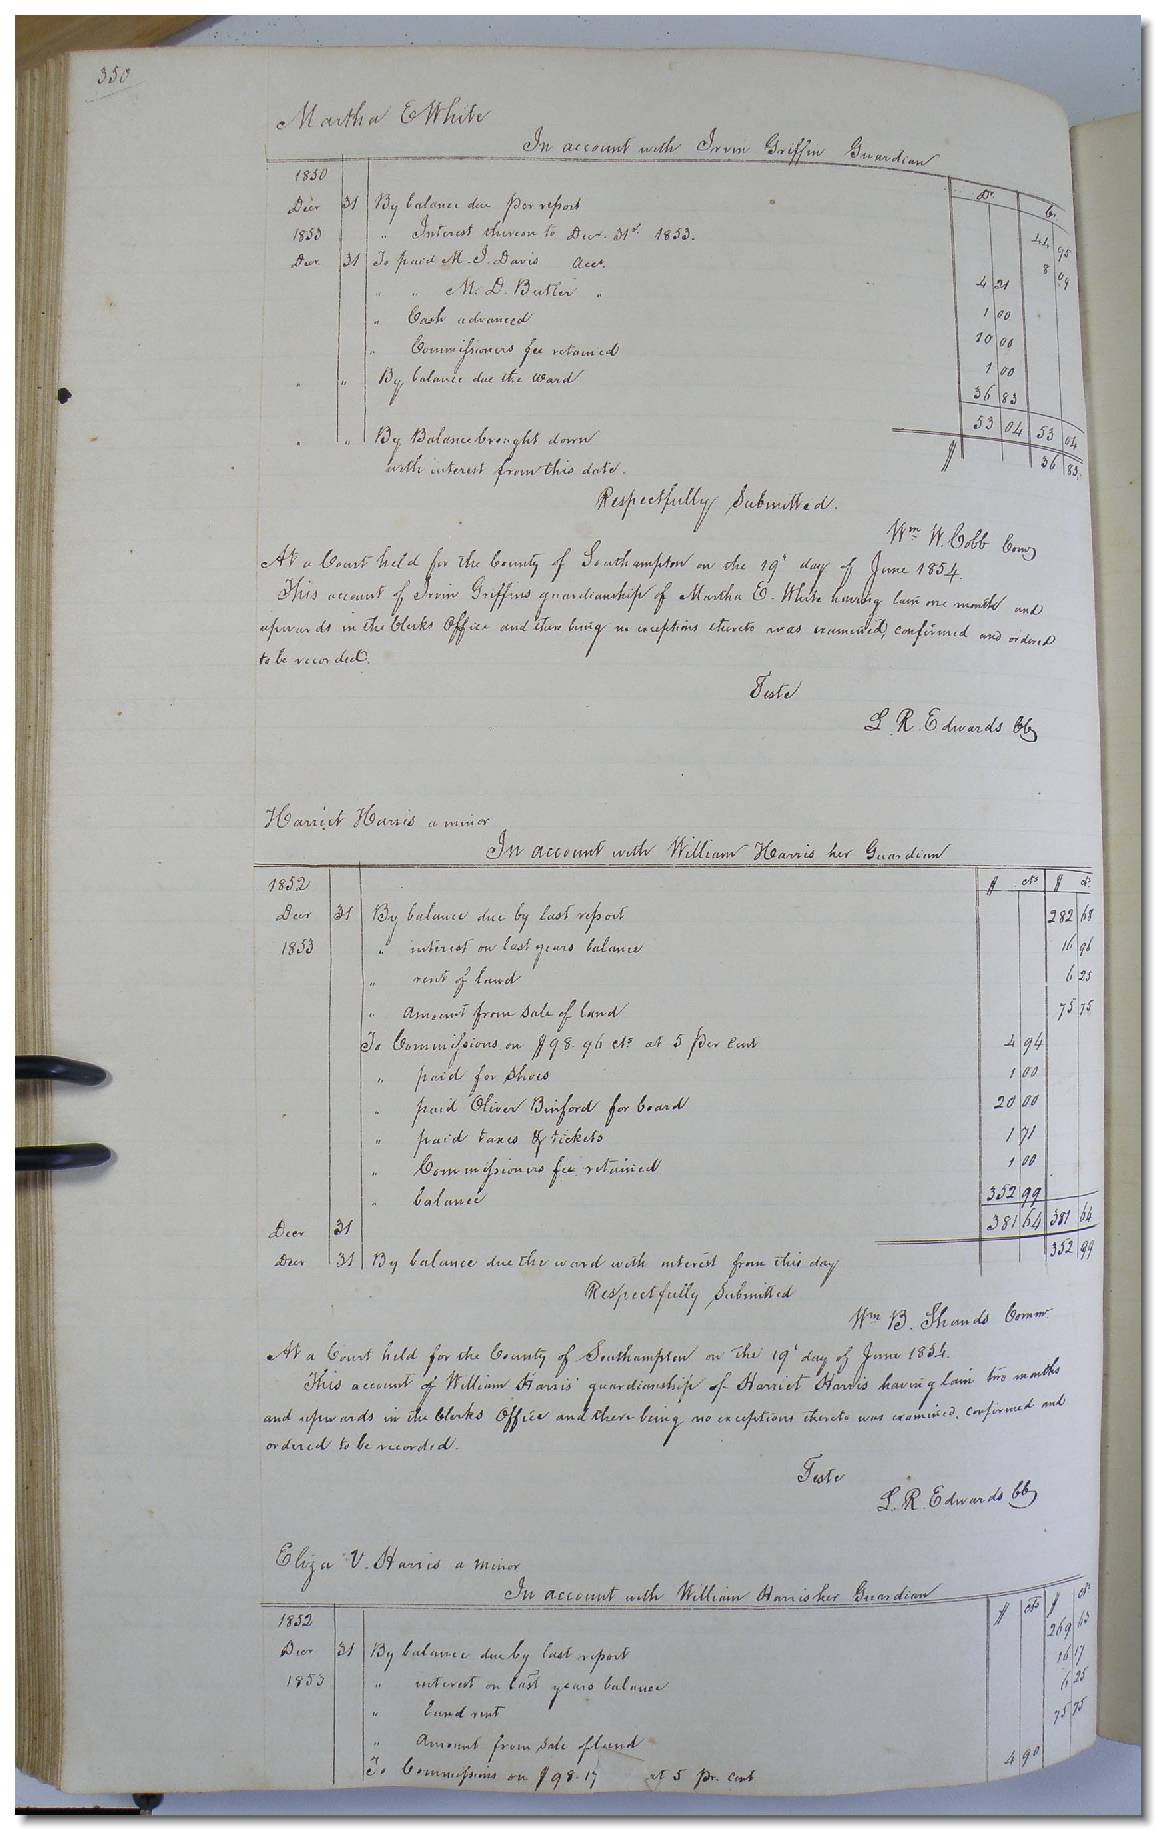 350
Martha E White
In account with Irvin Griffin Guardian
1850 Dr. Cr.
Decr 31 By balance due per report 44 95
1853 " Interest thereon to Decr. 31st. 1853. 8 09
Decr 31 To paid M. J. Davis Acct. 4 21
" " M. D. Butler " 1 00
" Cash advanced 10 00
" Commissioners fee retained 1 00
" " By balance due the ward 36 83
53 04 53 04
" " By Balance brought down $ 36 83
with interest from this date.
Respectfully Submitted.
Wm W. Cobb Comr
At a Court held for the County of Southampton on the 19th day of June 1854.
This account of Irvin Griffins guardianship of Martha E. White having lain one month and
upwards in the Clerks Office and there being no exceptions thereto was examined, confirmed and ordered
to be recorded.
Teste
L. R. Edwards Clk
Harriet Harris a minor
In account with William Harris her Guardian
1852 $ cts $ cts
Decr 31 By balance due by last report 282 68
1853 " interest on last years balance 16 96
" rent of land 6 25
" amount from sale of land 75 75
To Commissions on $98.96 cts at 5 per cent 4 94
" paid for shoes 1 00
" paid Oliver Binford for board 20 00
" paid taxes & tickets 1 71
" Commissioners fee retained 1 00
" balance 352 99
Decr 31 381 64 381 64
Decr 31 By balance due the ward with interest from this day 352 99
Respectfully Submitted
Wm B. Shands Commr.
At a Court held for the County of Southampton on the 19th day of June 1854.
This account of William Harris' guardianship of Harriet Harris having lain two months
and upwards in the Clerks Office and there being no exceptions thereto was examined, confirmed and
ordered to be recorded.
Teste
L. R. Edwards Clk
Eliza V. Harris a minor
In account with William Harris her Guardian
1852 $ cts $ cts
Decr 31 By balance due by last report 269 43
1853 " interest on last years balance 16 17
" Land rent 6 25
" amount from sale of land 75 75
To Commissions on $98.17 at 5 pr. cent 4 90